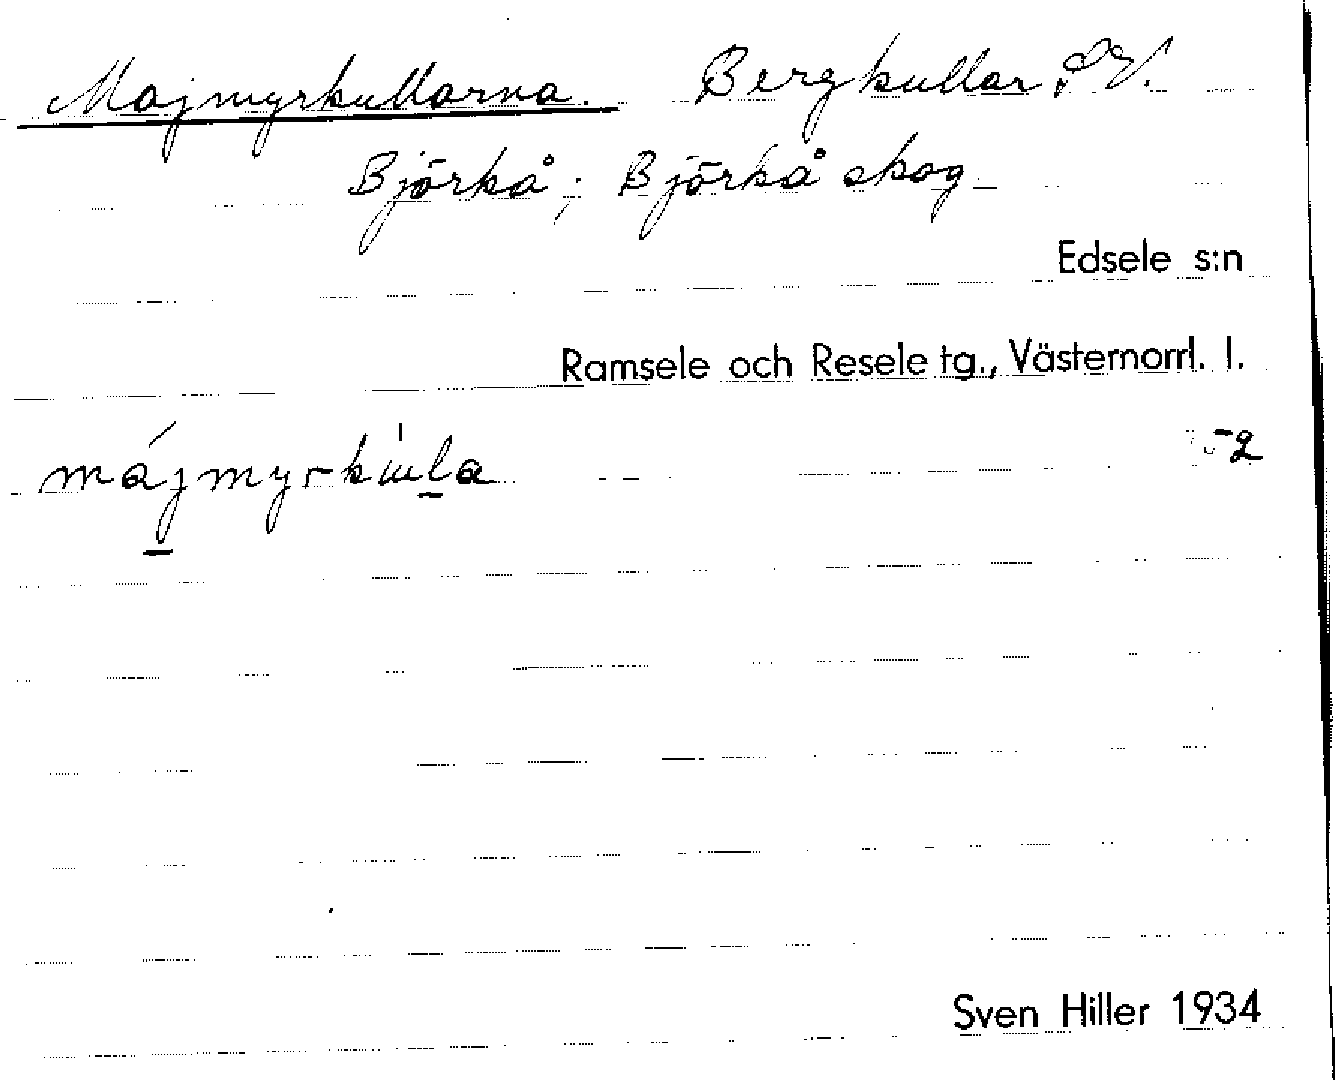 Majmyrkullarna. Bergkullar SV.
Björkå; Björkå skog
Edsele s:n
Ramsele och Resele tg., Västernorrl. l.
májmyrku̍la
Sven Hiller 1934